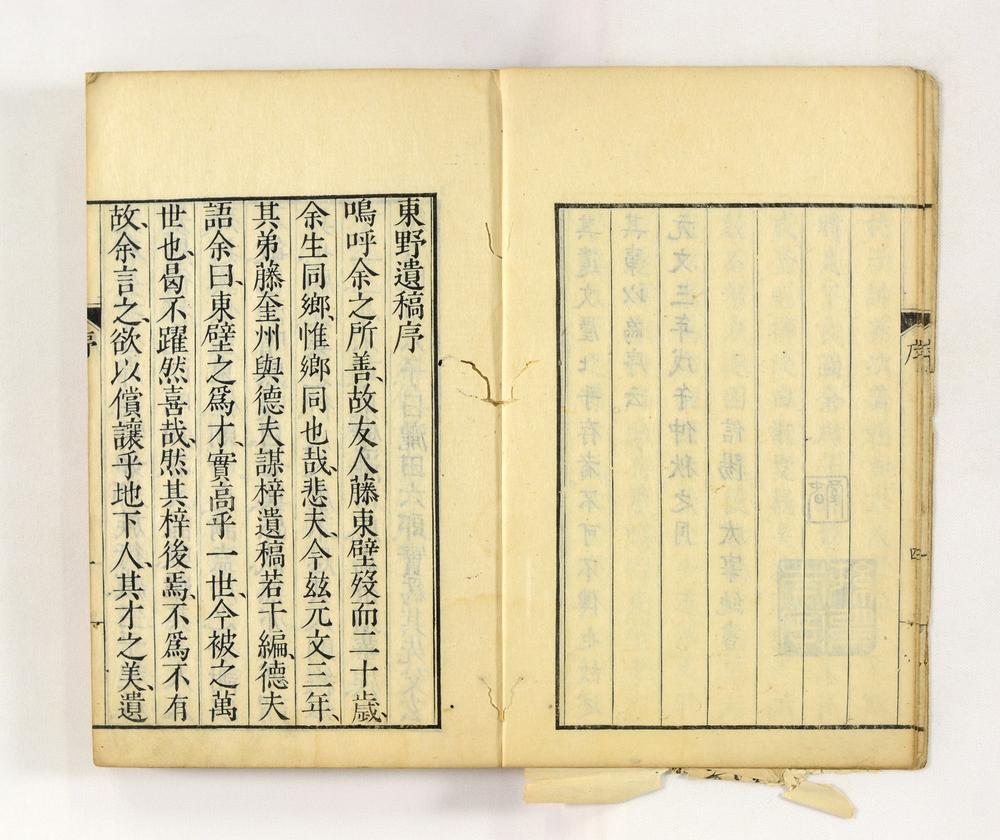 序
四
東野遺稿序
嗚呼余之所善、故友人藤東壁歿而二十歲、
余生同鄉、惟鄉同也哉、悲夫、今玆元文三年、
其弟藤奎州與德夫謀梓遺稿若干編、德夫
語余曰、東壁之爲才、實高乎一世、今被之萬
世也、曷不躍然喜哉、然其梓後焉、不爲不有
故、余言之、欲以償讓乎地下人、其才之美、遺
序